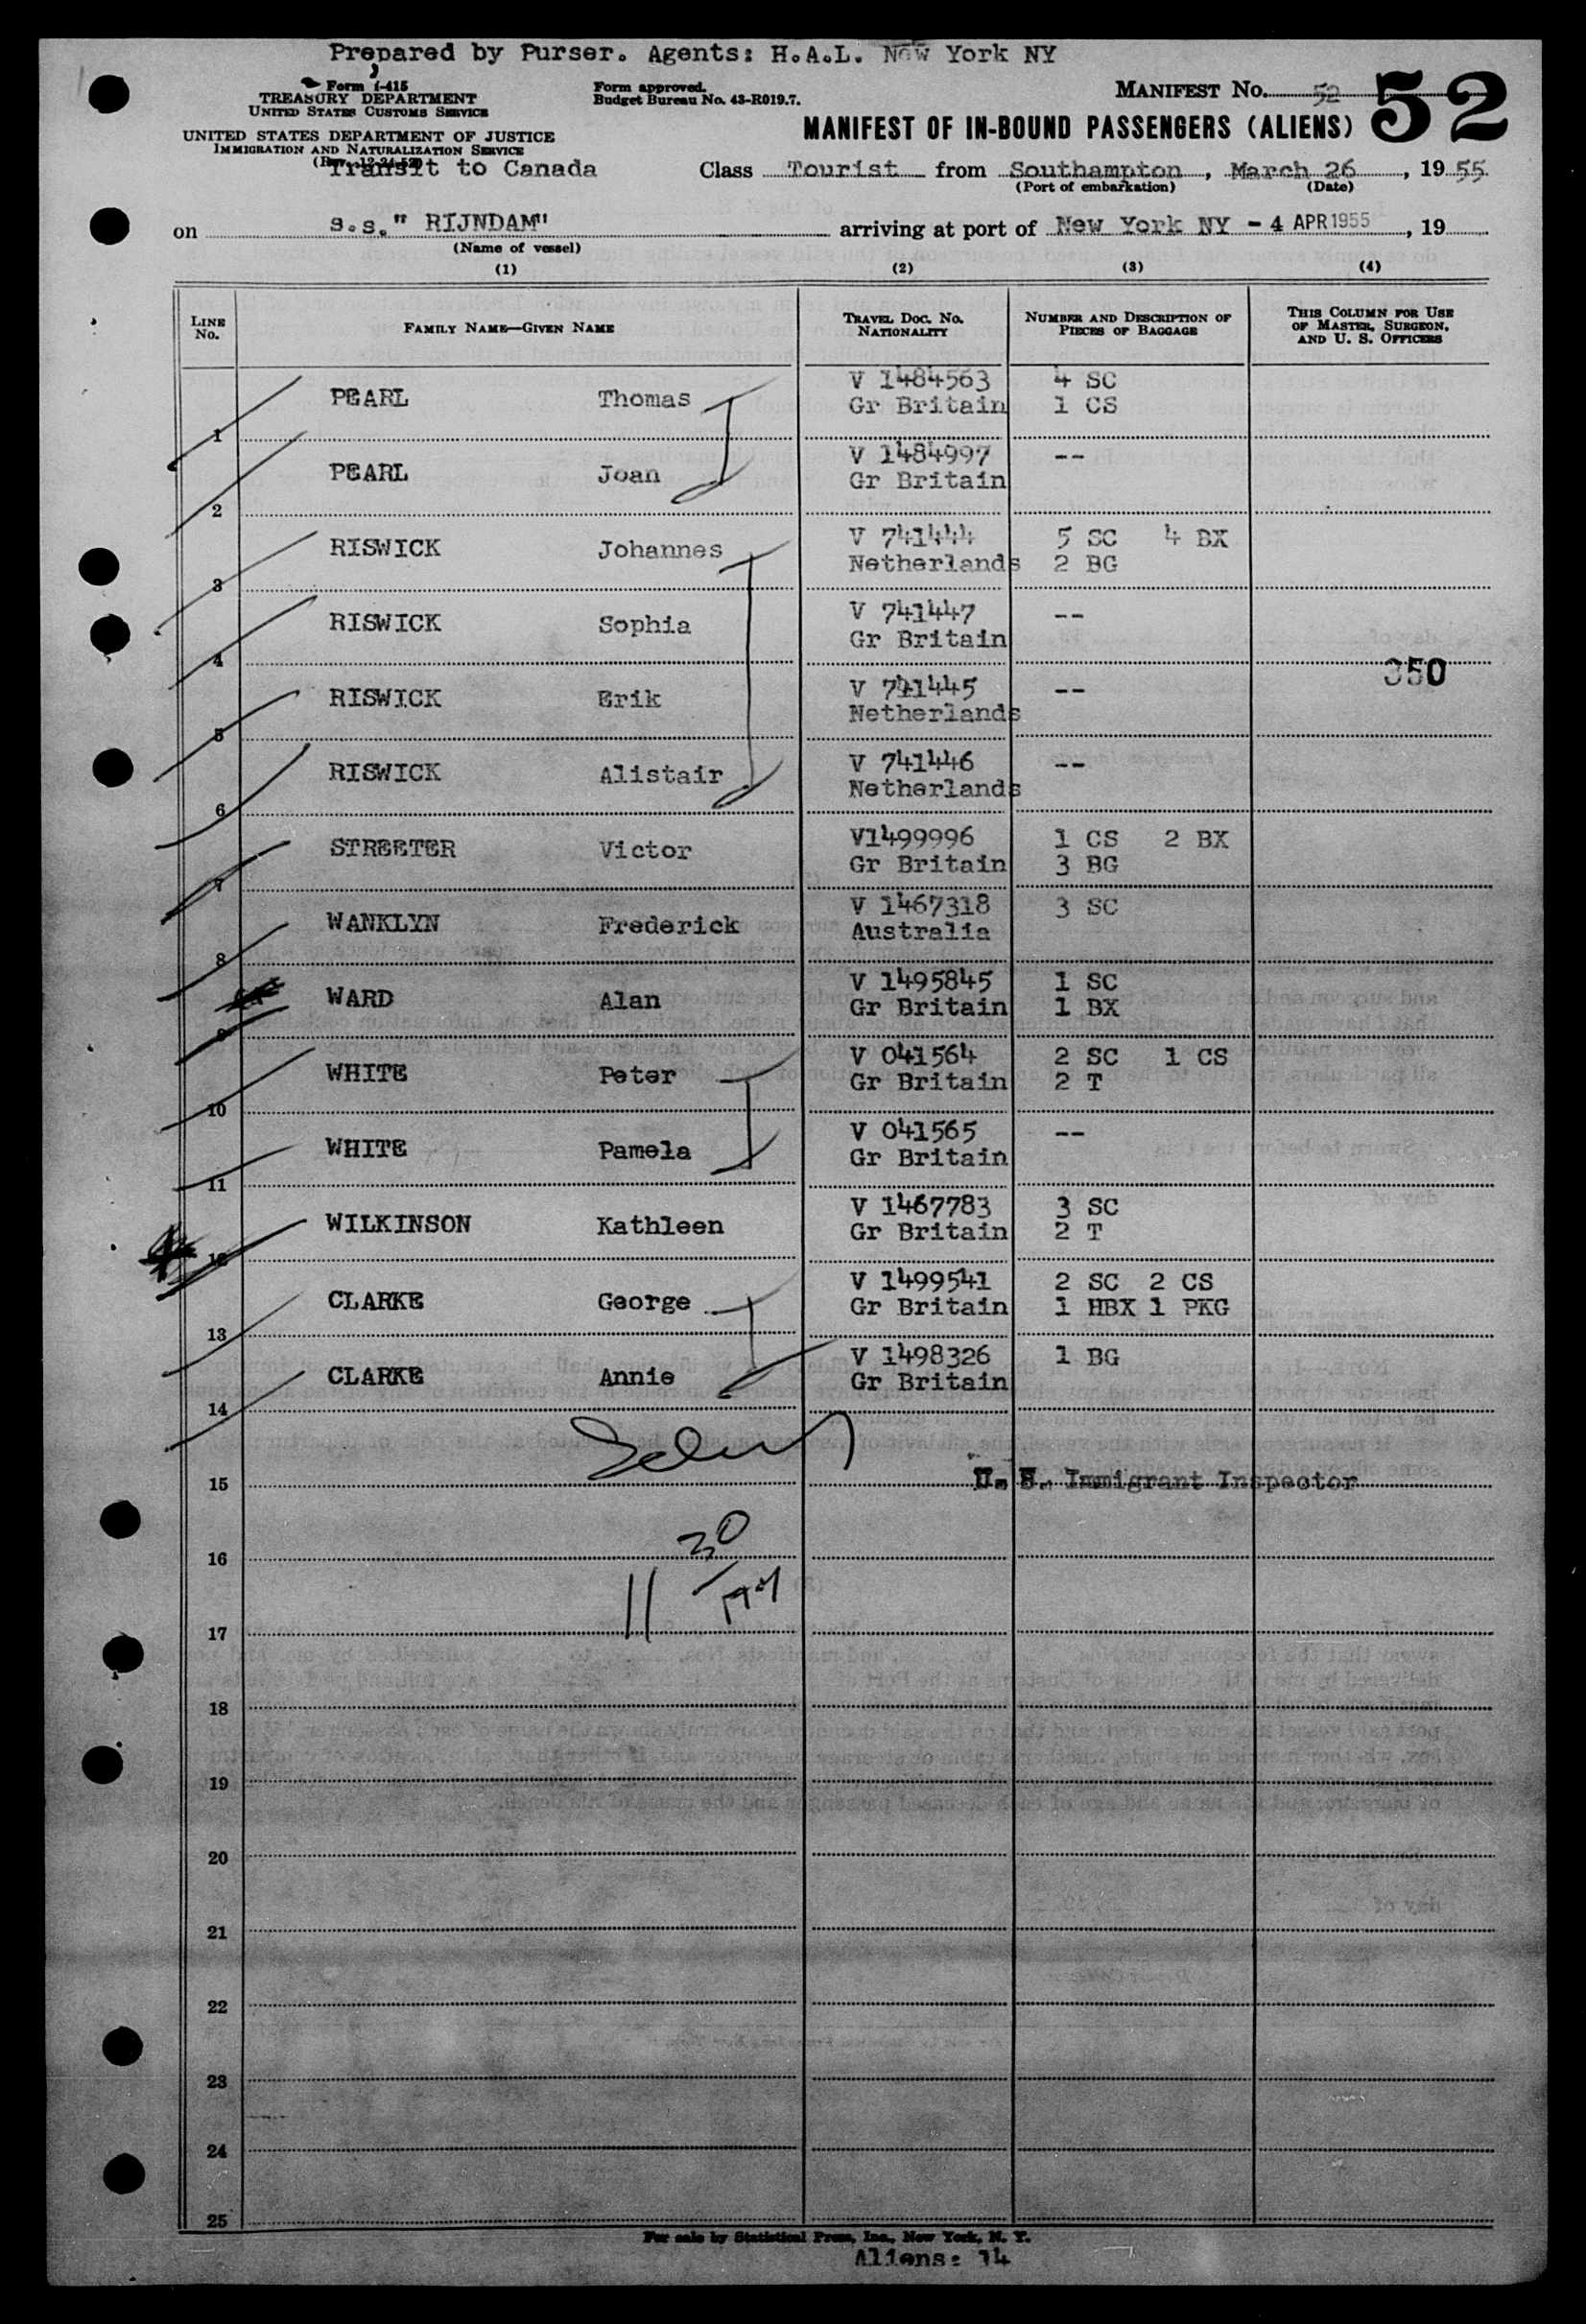 Prepared by Purser. Agents: H.A.L. New York NY
Form I-415
TREASURY DEPARTMENT
UNITED STATES CUSTOMS SERVICE
Form approved.
Budget Bureau No. 43-R019.7.
MANIFEST No. 52
52
UNITED STATES DEPARTMENT OF JUSTICE
IMMIGRATION AND NATURALIZATION SERVICE
(Rev. 12-24-52)
MANIFEST OF IN-BOUND PASSENGERS (ALIENS)
Transit to Canada
Class Tourist from Southampton, March 26, 1955
(Port of embarkation) (Date)
on s.s." RIJNDAM" arriving at port of New York NY - 4 APR 1955, 19
(Name of vessel)
(1) (2) (3) (4)
LINE No. FAMILY NAME—GIVEN NAME TRAVEL DOC. NO. NATIONALITY NUMBER AND DESCRIPTION OF PIECES OF BAGGAGE THIS COLUMN FOR USE OF MASTER, SURGEON, AND U. S. OFFICERS
1 PEARL Thomas V 1484563 4 SC
Gr Britain 1 CS
2 PEARL Joan V 1484997 --
Gr Britain
3 RISWICK Johannes V 741444 5 SC 4 BX
Netherlands 2 BG
4 RISWICK Sophia V 741447 --
Gr Britain
350
5 RISWICK Erik V 741445 --
Netherlands
6 RISWICK Alistair V 741446 --
Netherlands
7 STREETER Victor V1499996 1 CS 2 BX
Gr Britain 3 BG
8 WANKLYN Frederick V 1467318 3 SC
Australia
9 WARD Alan V 1495845 1 SC
Gr Britain 1 BX
10 WHITE Peter V 041564 2 SC 1 CS
Gr Britain 2 T
11 WHITE Pamela V 041565 --
Gr Britain
12 WILKINSON Kathleen V 1467783 3 SC
Gr Britain 2 T
13 CLARKE George V 1499541 2 SC 2 CS
Gr Britain 1 HBX 1 PKG
14 CLARKE Annie V 1498326 1 BG
Gr Britain
15 U. S. Immigrant Inspector
16 30
17 11
18
19
20
21
22
23
24
25
For sale by Statistical Press, Inc., New York, N. Y.
Aliens: 14